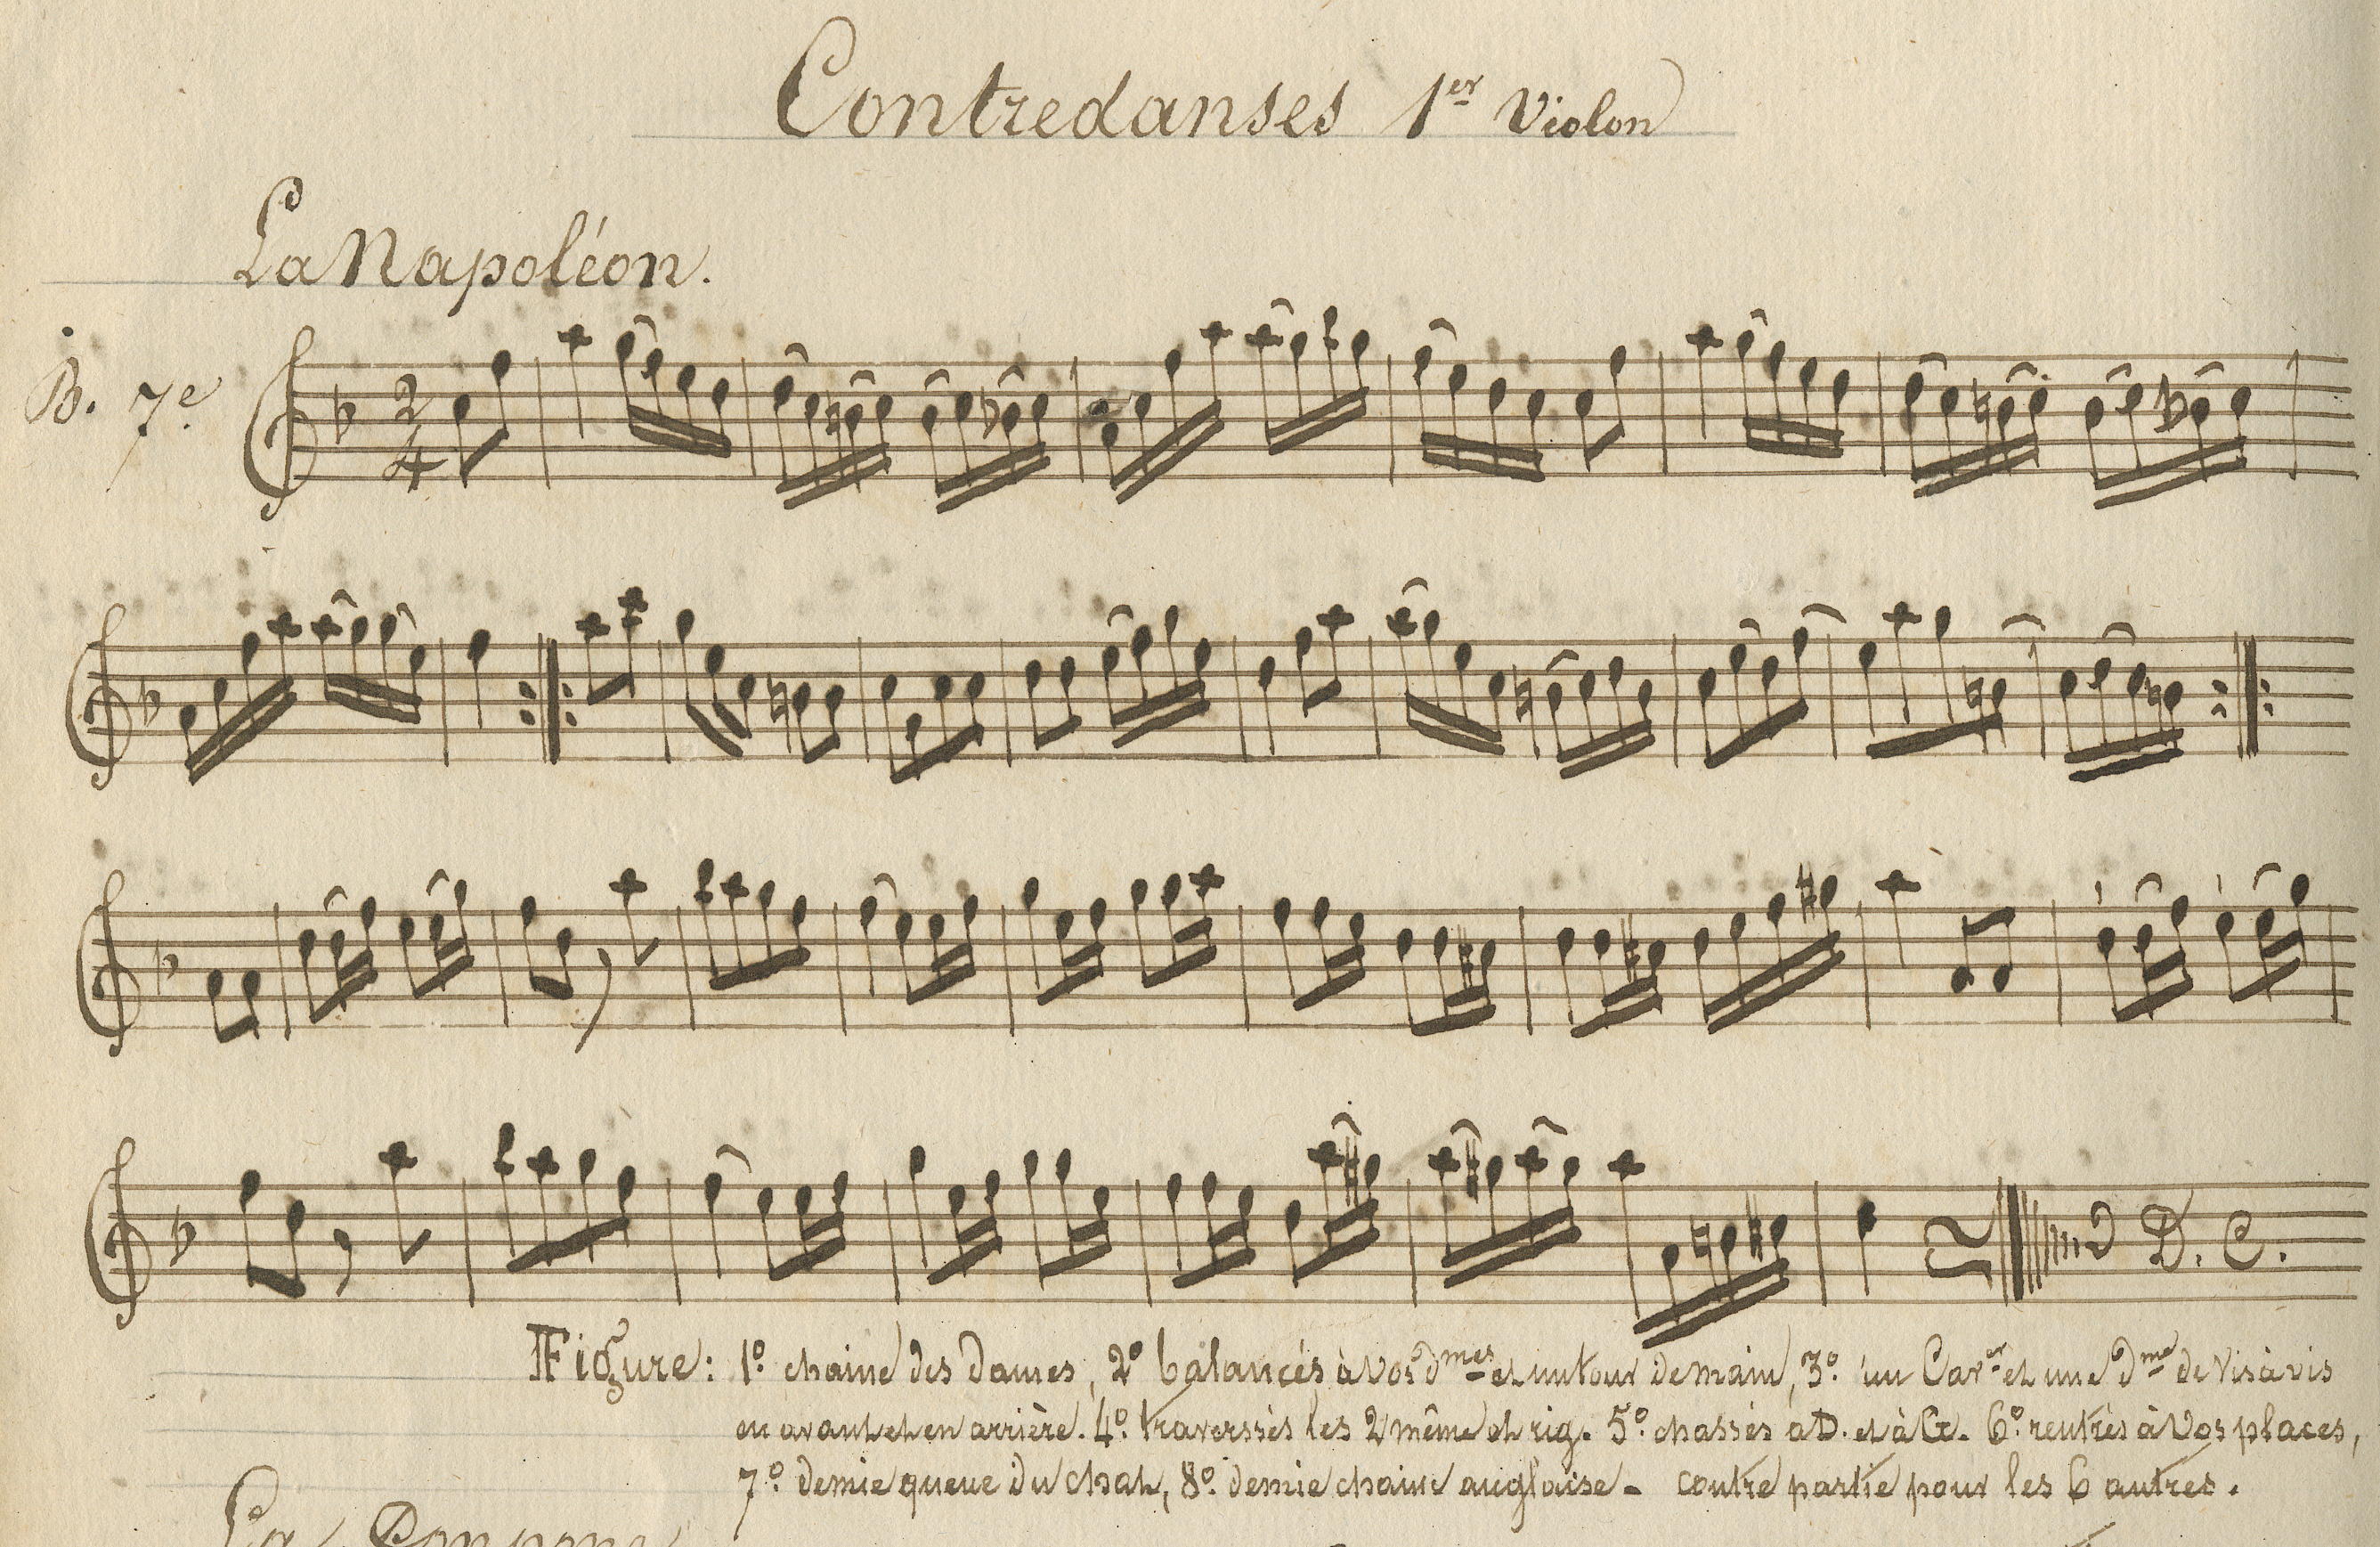 Contredanses 1er Violon
La Napoléon.
B. 7e
2/4
D. C.
Figure: 1o. chaine des Dames, 2o balancés à vos dmes et un tour de main, 3o. un Caver et une dme de vis à vis
en avant et en arrière. 4o. traverssés les 2 même et rig. 5o. chassés à D. et à G. 6o. rentrés à vos places,
7o. demie queue du chat, 8o. demie chaine anglaise - contre partie pour les 6 autres.
La